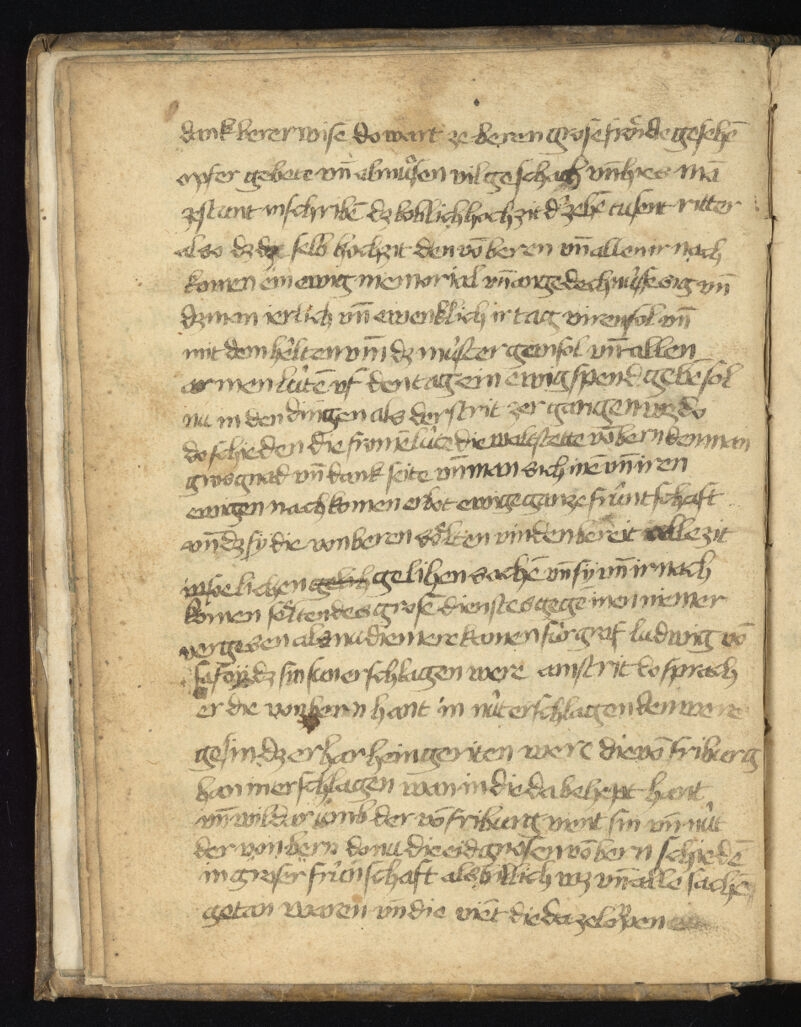 dankberer wise do wart ze beren grose froͤide gesehē
opfer gebete vn̄ almuͦsen vil geschach vn̄ hies mā
zestunt inschribē dz loblich hochzit dʼ zehē tusent ritter
also dz dz selb hochzit den vō beren vn̄ allen ir nach
komen ein ewig memorial vn̄ angedechnuͥsse sig vn̄
dz man ierlich vn̄ ewenklich ir tag viren sol vn̄
mit dem helten vm̄ dz muͥster gen sol vn̄ allen
armen luͥtē vf den tag ein ewig spend gebē sol
nu in den dingen als der strit zergangen wz do
do schieden die fromē luͥte die walstette vō bern den man
gros gnad vn̄ dank seite vn̄ man sich inē vn̄ iren
ewigen nachkomen erbot ewige ganze fruͥntschaft
vn̄ dz sy die von beren soͤlten vinden bereit alle zit
in soelichen gelich gelihen sachē vn̄ sy vn̄ ir nach
komen soͤlten des grosē dienstes gegē inen niemer
vergesen als nu die mere kamen fuͥr graf ludwig vō
safoy dz sin sun erschlagen were am strit do sprach
er die von bern hant in nuͥt erschlagen den were
gesin dz er har hein geriten were die vō friburg
han in erschlagen wan in die da behept hant
vn̄ wil dar umb der vō friburg vient sin vn̄ nuͥt
der von bern do nu die eidgnosen vō bern schiedē
in groser fruͥnschaft als billich wz vn̄ alle sachē
getan waren vn̄ die vient die da ze loͮpen